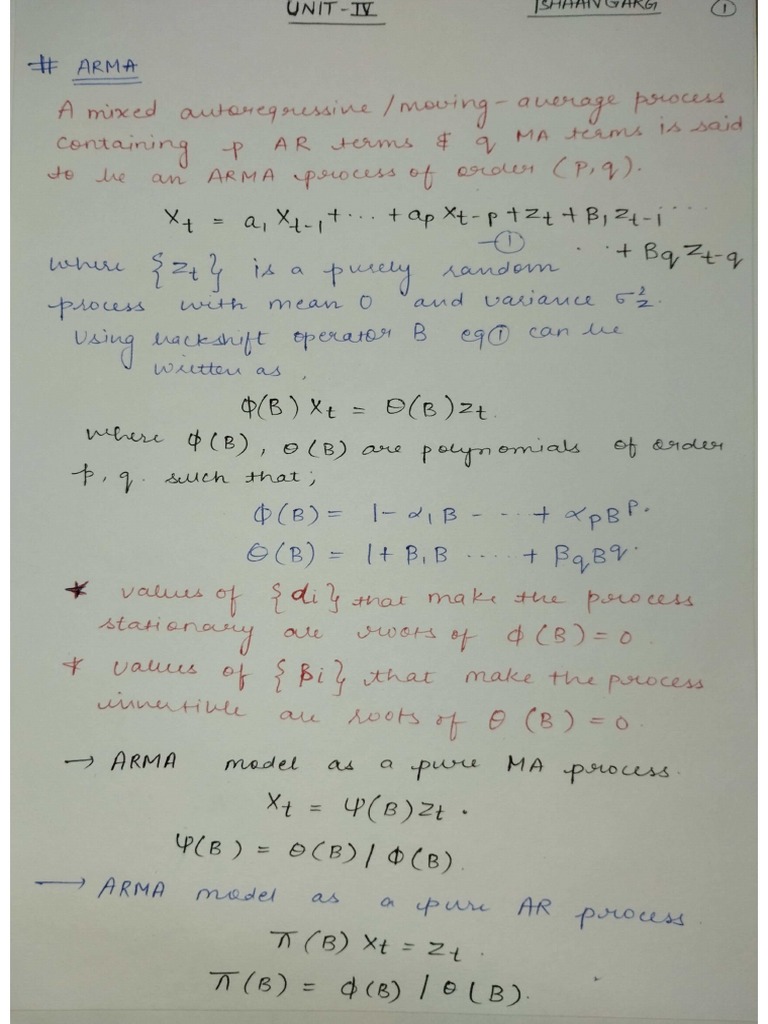 UNIT-IV
ISHAAN GARG
1
# ARMA
A mixed autoregressive/moving-average process
containing p AR terms & q MA terms is said
to be an ARMA process of order (p,q).
Xt = a1 Xt-1 + ... + ap Xt-p + Zt + B1 Zt-1 ...
- ① ... + Bq Zt-q
where {Zt} is a purely random
process with mean 0 and variance σ²z.
Using backshift operator B eq① can be
written as,
ϕ(B) Xt = θ(B) Zt.
where ϕ(B), θ(B) are polynomials of order
p, q. such that;
ϕ(B) = 1 - α1 B - ... + αp B^p.
θ(B) = 1 + B1 B ..... + Bq B^q.
* values of {αi} that make the process
stationary are roots of ϕ(B) = 0.
* values of {βi} that make the process
invertible are roots of θ(B) = 0.
→ ARMA model as a pure MA process.
Xt = ψ(B) Zt.
ψ(B) = θ(B) / ϕ(B).
→ ARMA model as a pure AR process.
π(B) Xt = Zt.
π(B) = ϕ(B) / θ(B).